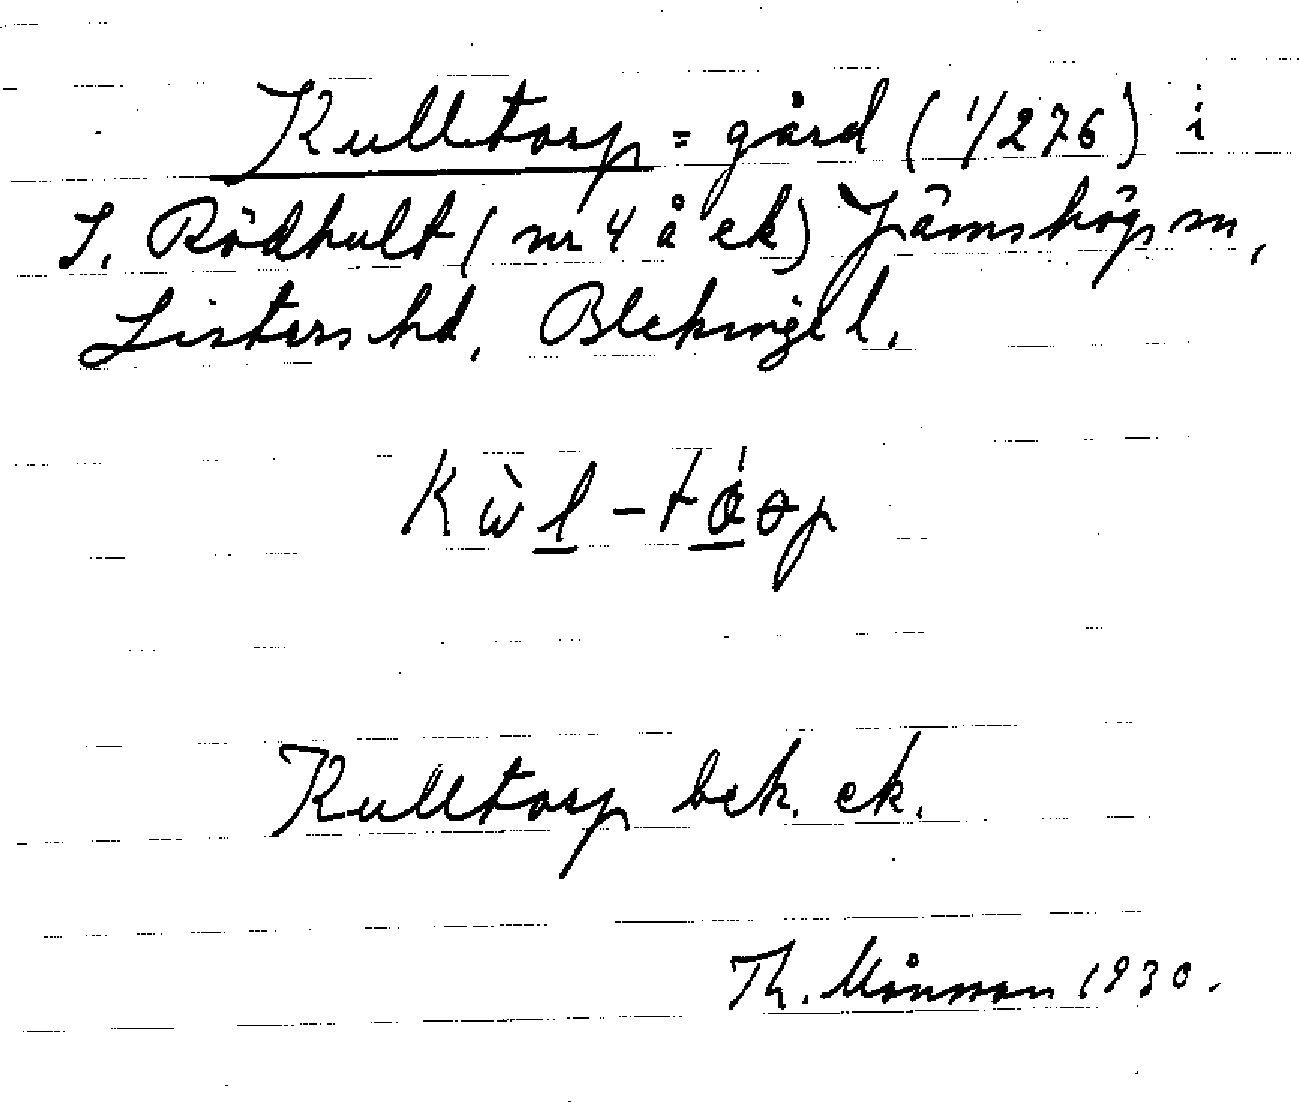 Kulltorp = gård (1/276) i
S. Rödhult (nr 4 å ek) Jämshögs sn,
Listers hd, Blekinge l.
Kulltorp bek. ek.
Th. Månsson 1930.